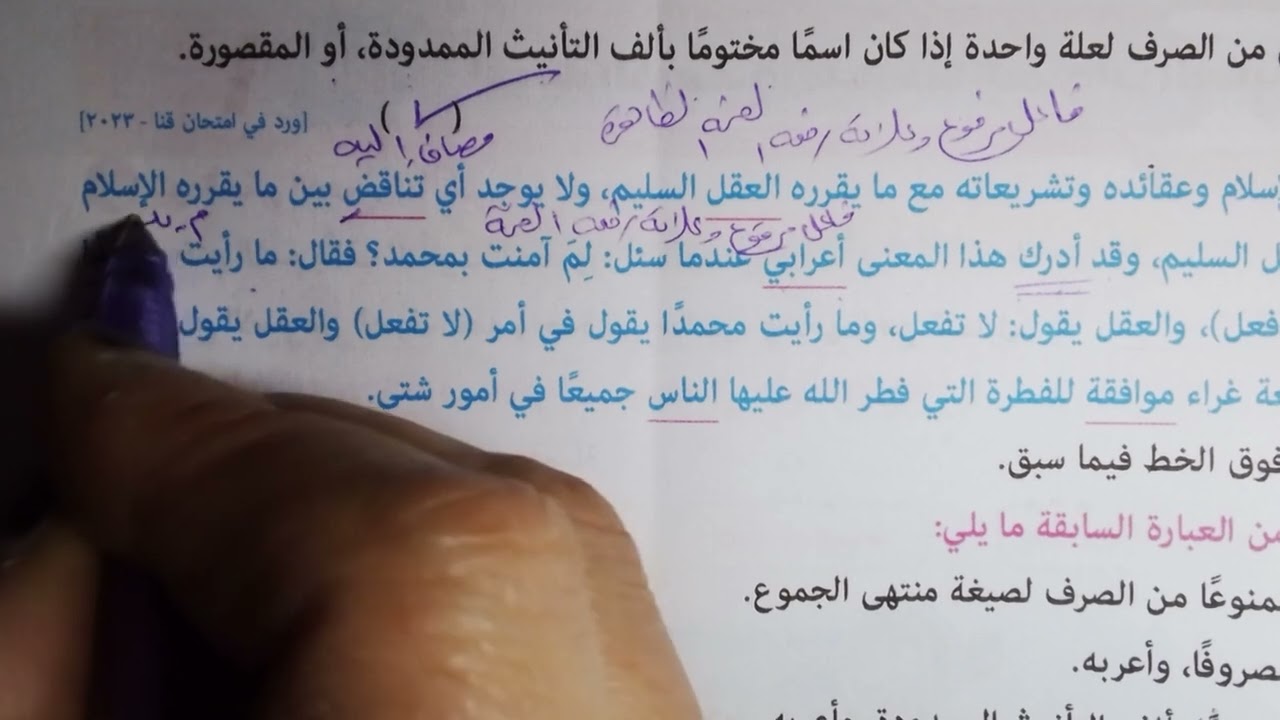 من الصرف لعلة واحدة إذا كان اسمًا مختومًا بألف التأنيث الممدودة، أو المقصورة.
فاعل مرفوع وعلامة رفعه الضمة الظاهرة
[ورد في امتحان قنا - ٢٠٢٣]
مضاف إليه
سلام وعقائده وتشريعاته مع ما يقرره العقل السليم، ولا يوجد أي تناقض بين ما يقرره الإسلام
فاعل مرفوع وعلامة رفعه الضمة
ل السليم، وقد أدرك هذا المعنى أعرابي عندما سئل: لِمَ آمنت بمحمد؟ فقال: ما رأيت
فعل)، والعقل يقول: لا تفعل، وما رأيت محمدًا يقول في أمر (لا تفعل) والعقل يقول
ة غراء موافقة للفطرة التي فطر الله عليها الناس جميعًا في أمور شتى.
فوق الخط فيما سبق.
ن العبارة السابقة ما يلي:
منوعًا من الصرف لصيغة منتهى الجموع.
صروفًا، وأعربه.